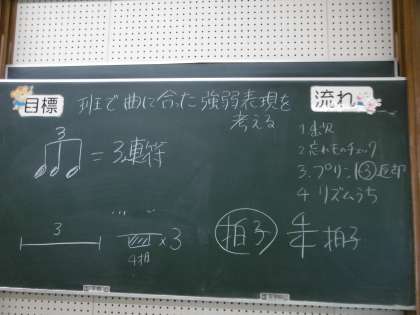 目標
班で曲に合った強弱表現を
考える
流れ
1 出欠
2 忘れものチェック
3. プリント③返却
4 リズムうち
3
= 3連符
3
4拍
×3
拍子
4/4 拍子